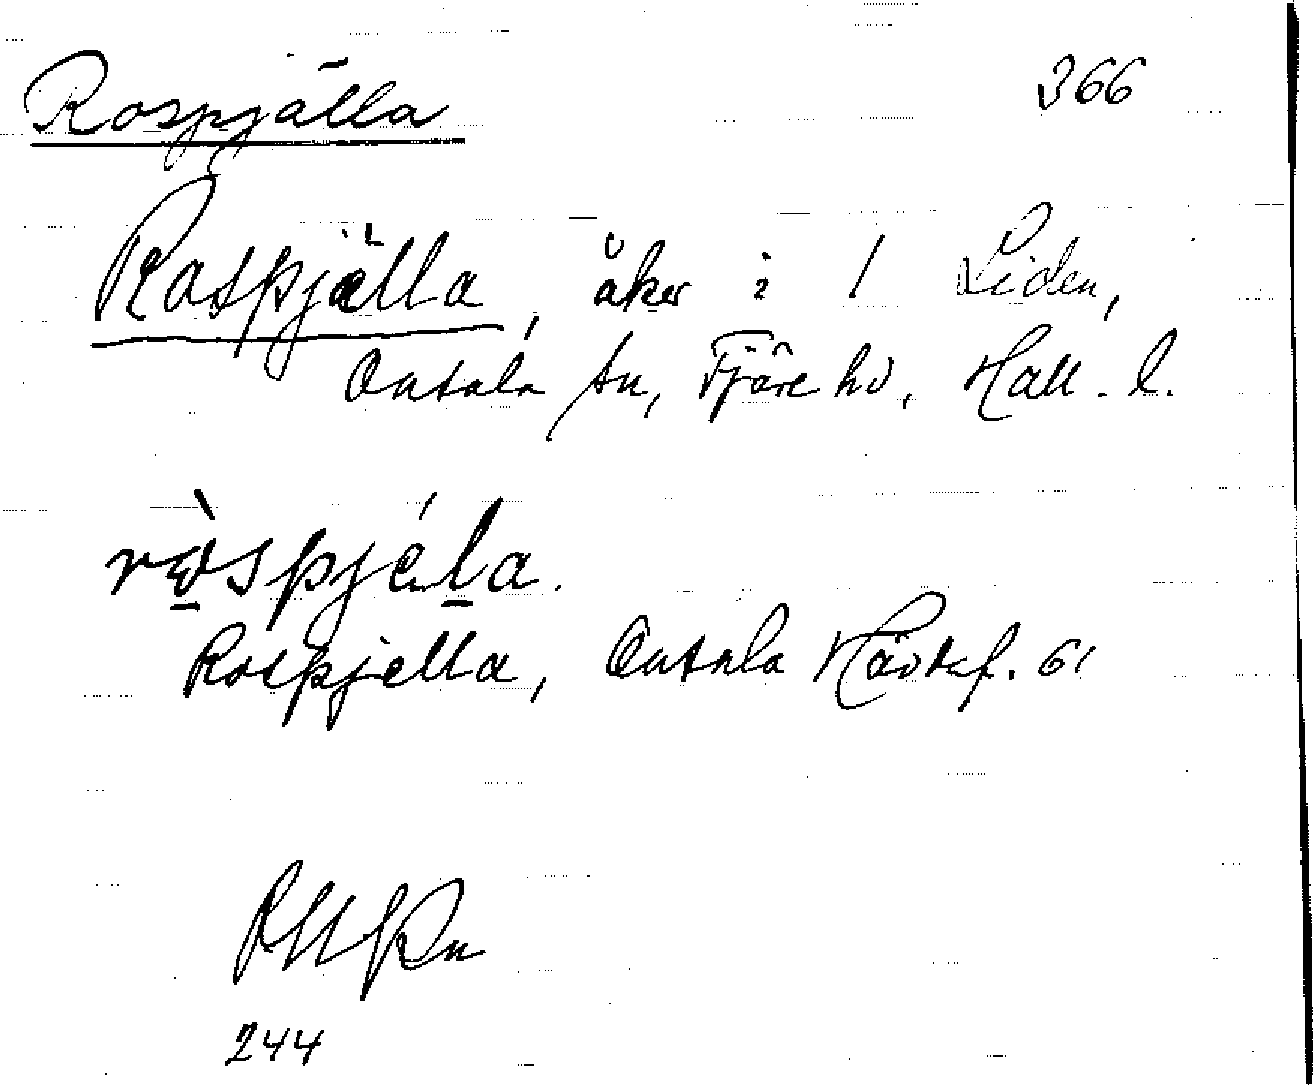 Rospjälla 366
Rospjälla, åker i 1 Liden,
Onsala sn, Fjäre hd, Hall. l.
Rospjella, Onsala Hävdsf. 61
244